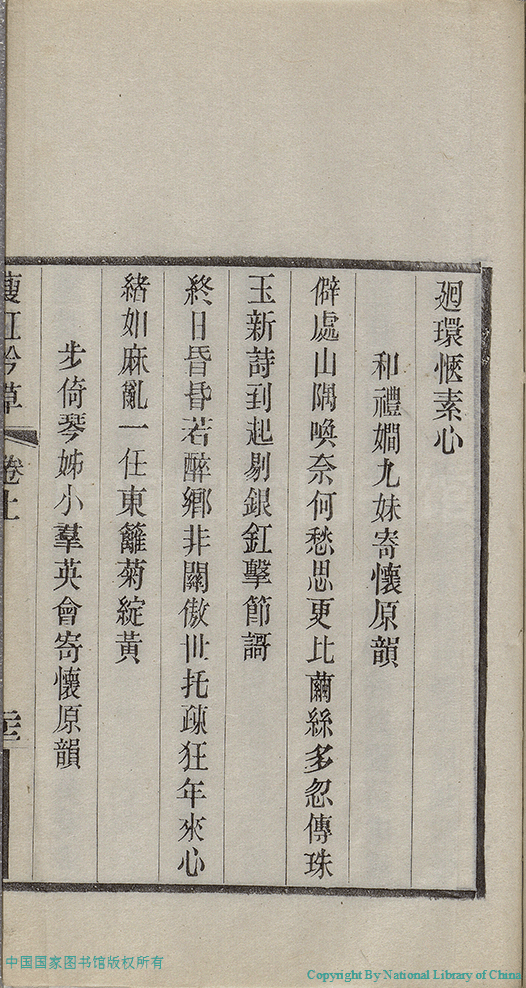 廻環愜素心
和禮嫺九妹寄懷原韻
僻處山隅喚奈何愁思更比繭絲多忽傳珠
玉新詩到起剔銀釭擊節謌
終日昏昏若醉鄉非關傲世托疎狂年來心
緒如麻亂一任東籬菊綻黃
步倚琴姊小羣英會寄懷原韻
瘦紅吟草
卷上
中国国家图书馆版权所有
Copyright By National Library of China